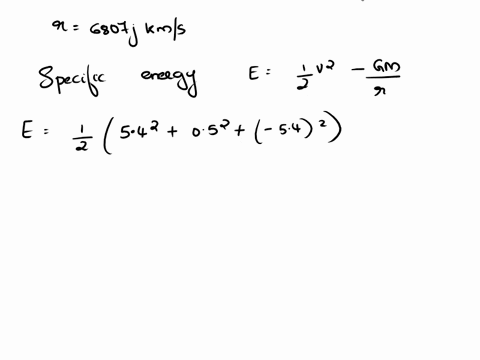 r = 6807j km/s
Specific energy E = 1/2 v² - GM/r
E = 1/2 (5.4² + 0.5² + (-5.4)²)